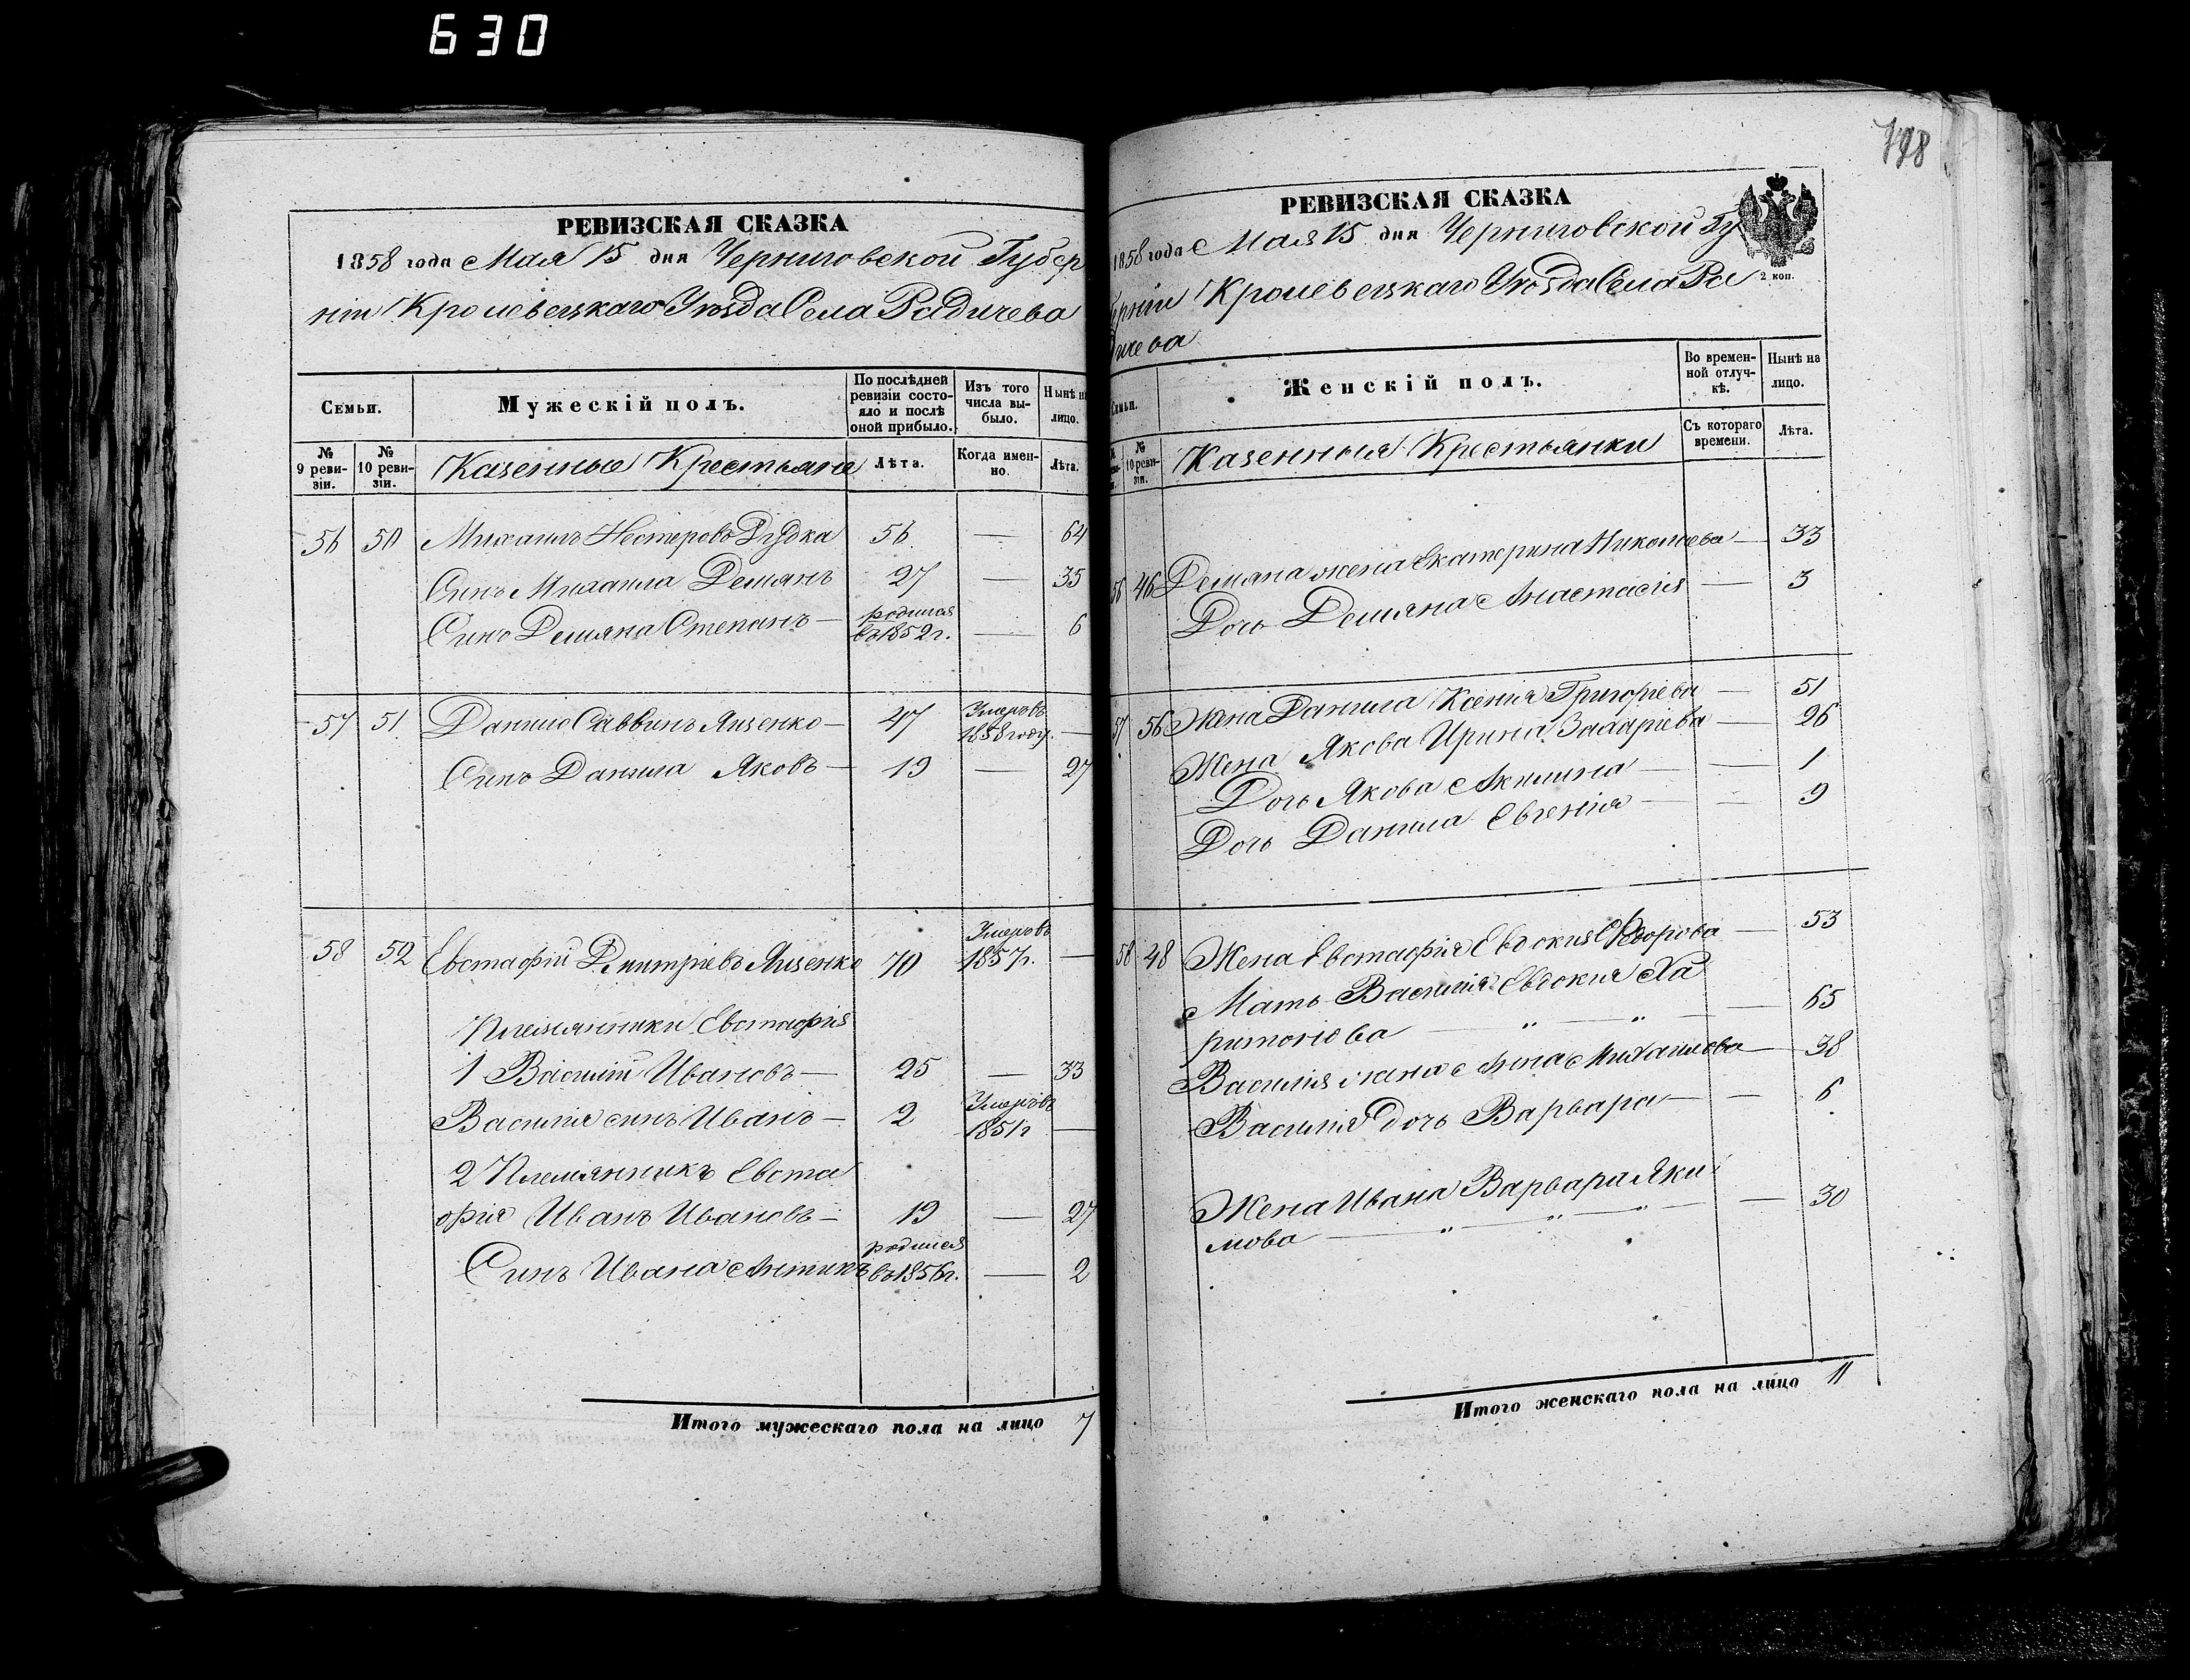 630
РЕВИЗСКАЯ СКАЗКА
1858 года Мая 15 дня Черниговской Губер
ніи Кролевецкаго Уѣзда Села Радичева
Семьи.
Мужескій полъ.
По послѣдней ревизіи состояло и послѣ оной прибыло.
Изъ того числа выбыло.
Нынѣ на лицо.
№ 9 ревизіи.
№ 10 ревизіи.
Казенные Крестьяне
Лѣта.
Когда именно.
Лѣта.
56 50 Михаилъ Нестеровъ Рудка 56 — 64
Синъ Михаила Демянъ 27 — 35
Синъ Демяна Степанъ — родился въ 1852 г. — 6
57 51 Данило Саввинъ Яценко — 47 Умеръ въ 1858 году. —
Синъ Данила Яковъ — 19 — 27
58 52 Евстафій Дмитріевъ Яценко 70 Умеръ въ 1857 г. —
Племянники Евстафія
1 Василій Ивановъ — 25 — 33
Василія синъ Иванъ — 2 Умеръ въ 1851 г —
2 Племянникъ Евста
фія Иванъ Ивановъ — 19 — 27
Синъ Ивана Антипъ родился въ 1856 г. — 2
Итого мужескаго пола на лицо 7
798
РЕВИЗСКАЯ СКАЗКА
1858 года Мая 15 дня Черниговской Гу
берніи Кролевецкаго Уѣзда Села Ра
дичева
2 коп.
Семьи.
Женскій полъ.
Во временной отлучкѣ.
Нынѣ на лицо.
№ 10 ревизіи.
Казенныя Крестьянки
Съ котораго времени.
Лѣта.
56 46 Демяна жена Екатерина Николаева — 33
Дочь Демяна Анастасія — 3
57 56 Жена Данила Ксенія Григоріева — 51
Жена Якова Ирина Захаріева — 26
Дочь Якова Акилина — — 1
Дочь Данила Евгенія — — 9
58 48 Жена Евстафія Евдокия Федорова — 53
Мать Василія Евдокия Ха
ритонова — " — " — — 65
Василія жена Анна Михаилова — 38
Василія дочь Варвара — — 6
Жена Ивана Варвара Яки
мова — " — " — " — — 30
Итого женскаго пола на лицо 11